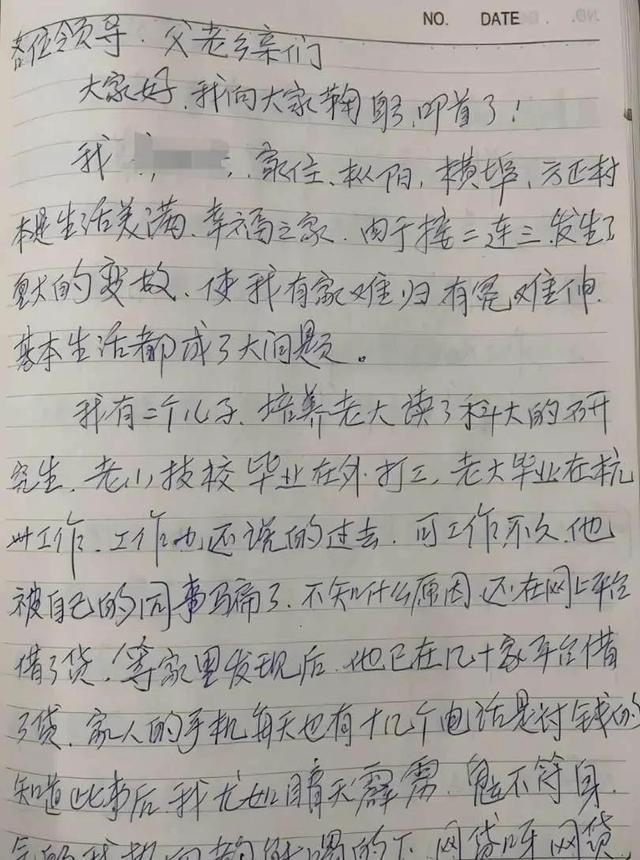 NO. DATE
各位领导、父老乡亲们
大家好,我向大家鞠躬,叩首了!
我 家住、枞阳,横埠,方正村
本是生活美满、幸福之家、由于接二连三、发生了
的变故、使我有家难归有冤难伸.
基本生活都成了大问题。
我有二个儿子、培养老大读了科大的研
究生、老小技校毕业在外打工,老大毕业在杭
州工作、工作也还说的过去、可工作不久、他
被自己的同事骗了、不知什么原因、还在网上平台
借了贷、等家里发现后、他已在几十家平台借
了贷、家人的手机每天也有十几个电话是讨钱的
知道此事后、我尤如晴天霹雳、魂不符身、
网贷呀网贷